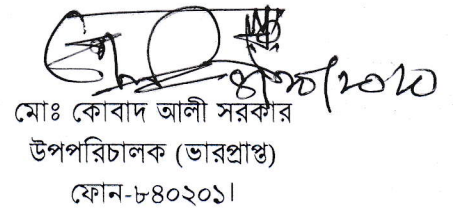 মোঃ কোবাদ আলী সরকার
উপপরিচালক (ভারপ্রাপ্ত)
ফোন-৮৪০২০১।